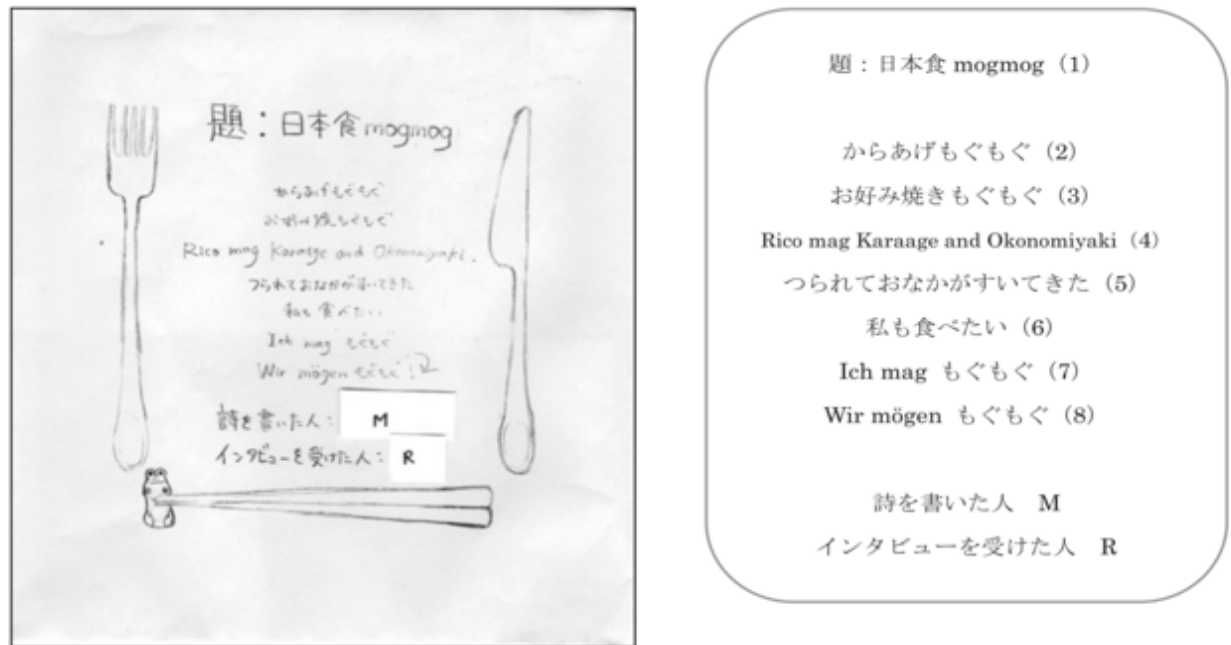 題：日本食mogmog
からあげもぐもぐ
お好み焼もぐもぐ
Rico mag Karaage and Okonomiyaki.
つられておなかがすいてきた
私も食べたい
Ich mag もぐもぐ
Wir mögen もぐもぐ!
詩を書いた人： M
インタビューを受けた人： R
題：日本食 mogmog（1）
からあげもぐもぐ（2）
お好み焼きもぐもぐ（3）
Rico mag Karaage and Okonomiyaki（4）
つられておなかがすいてきた（5）
私も食べたい（6）
Ich mag もぐもぐ（7）
Wir mögen もぐもぐ（8）
詩を書いた人　M
インタビューを受けた人　R